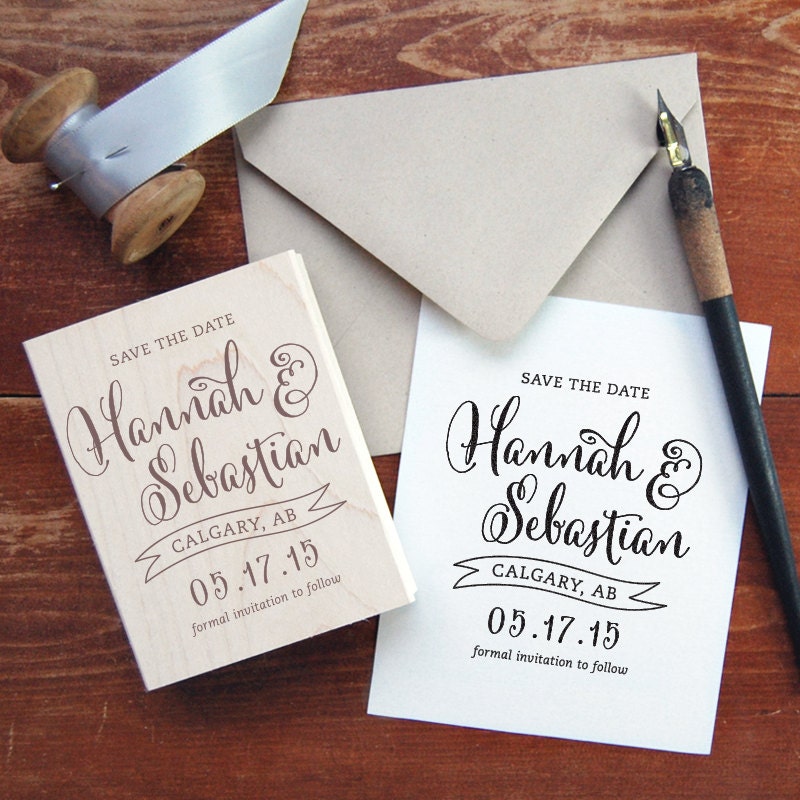 SAVE THE DATE
Hannah &
Sebastian
CALGARY, AB
05.17.15
formal invitation to follow
SAVE THE DATE
Hannah &
Sebastian
CALGARY, AB
05.17.15
formal invitation to follow